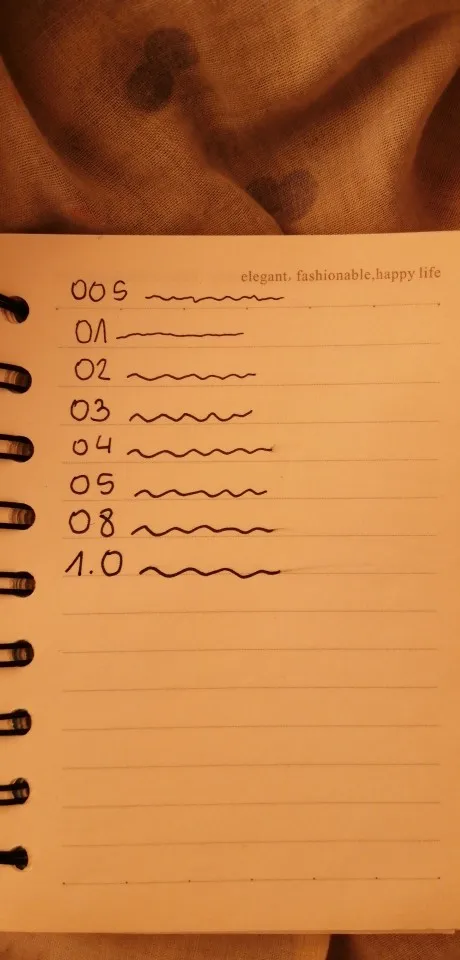 elegant, fashionable,happy life
005
01
02
03
04
05
08
1.0